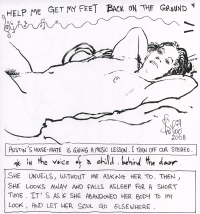 HELP ME GET MY FEET BACK ON THE GROUND
2008
AUSTIN'S HOUSE-MATE IS GIVING A MUSIC LESSON. I TURN OFF OUR STEREO.
* in the voice of a child behind the door
SHE UNVEILS, WITHOUT ME ASKING HER TO. THEN,
SHE LOOKS AWAY AND FALLS ASLEEP FOR A SHORT
TIME. IT'S AS IF SHE ABANDONED HER BODY TO MY
LOOK, AND LET HER SOUL GO ELSEWHERE.